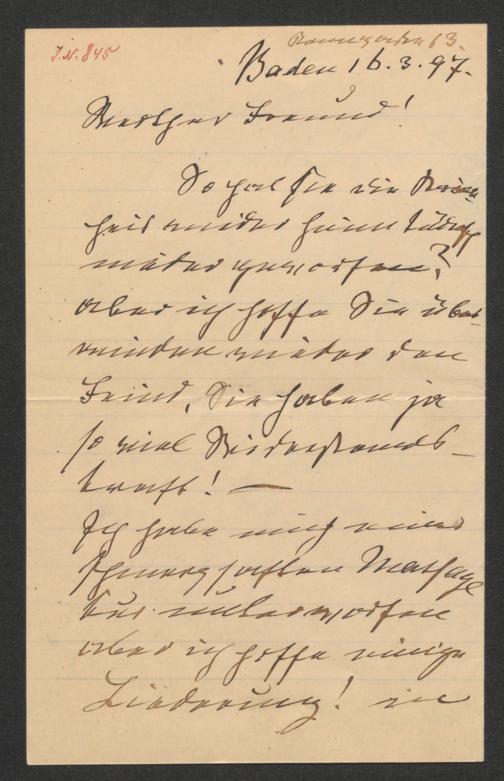 I.N. 845
Baden 16.3.97.
Werther Freund!
So hat Sie die Krank-
heit wieder heimtückisch
nieder geworfen?
aber ich hoffe Sie über-
winden wieder den
Feind, Sie haben ja
so viel Widerstands-
kraft! —
Ich habe mich einer
schmerzhaften Massage
kur unterworfen
aber ich hoffe einige
Linderung! in